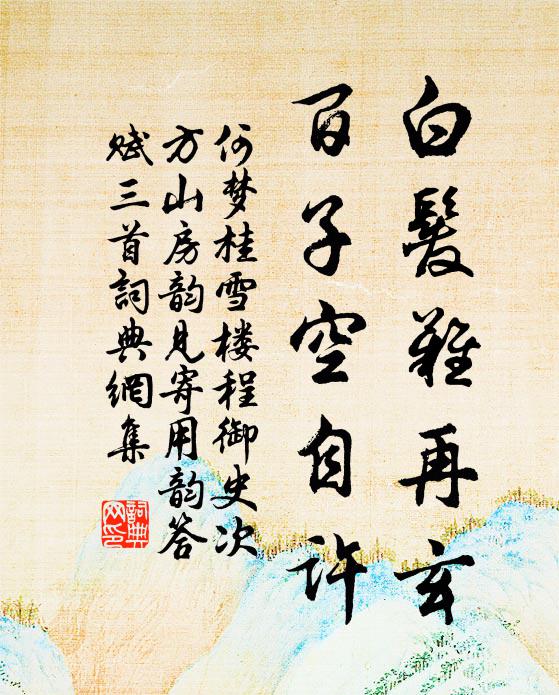 白髮難再玄
百子空自許
何梦桂雪楼程御史次
方山房韵見寄用韵答
赋三首詞典網集
詞典
网印